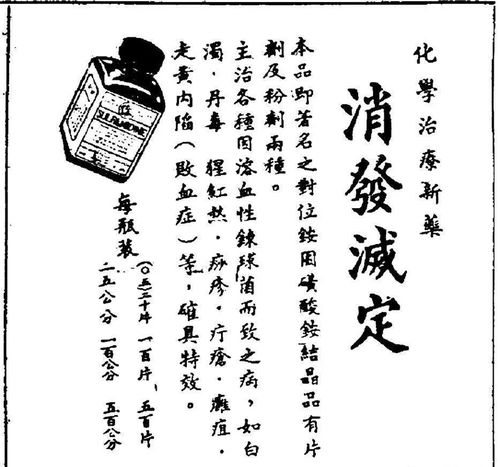 化學治療新藥
消發滅定
本品即著名之對位銨困磺酸銨結晶品有片
劑及粉劑兩種。
主治各種因溶血性鍊球菌而致之病，如白
濁．丹毒 猩紅熱．痧疹．疔瘡．癰疽．
走黃內陷（敗血症）等，確具特效。
每瓶裝
（〇．五）二十片 一百片、五百片
二五公分 一百公分 五百公分